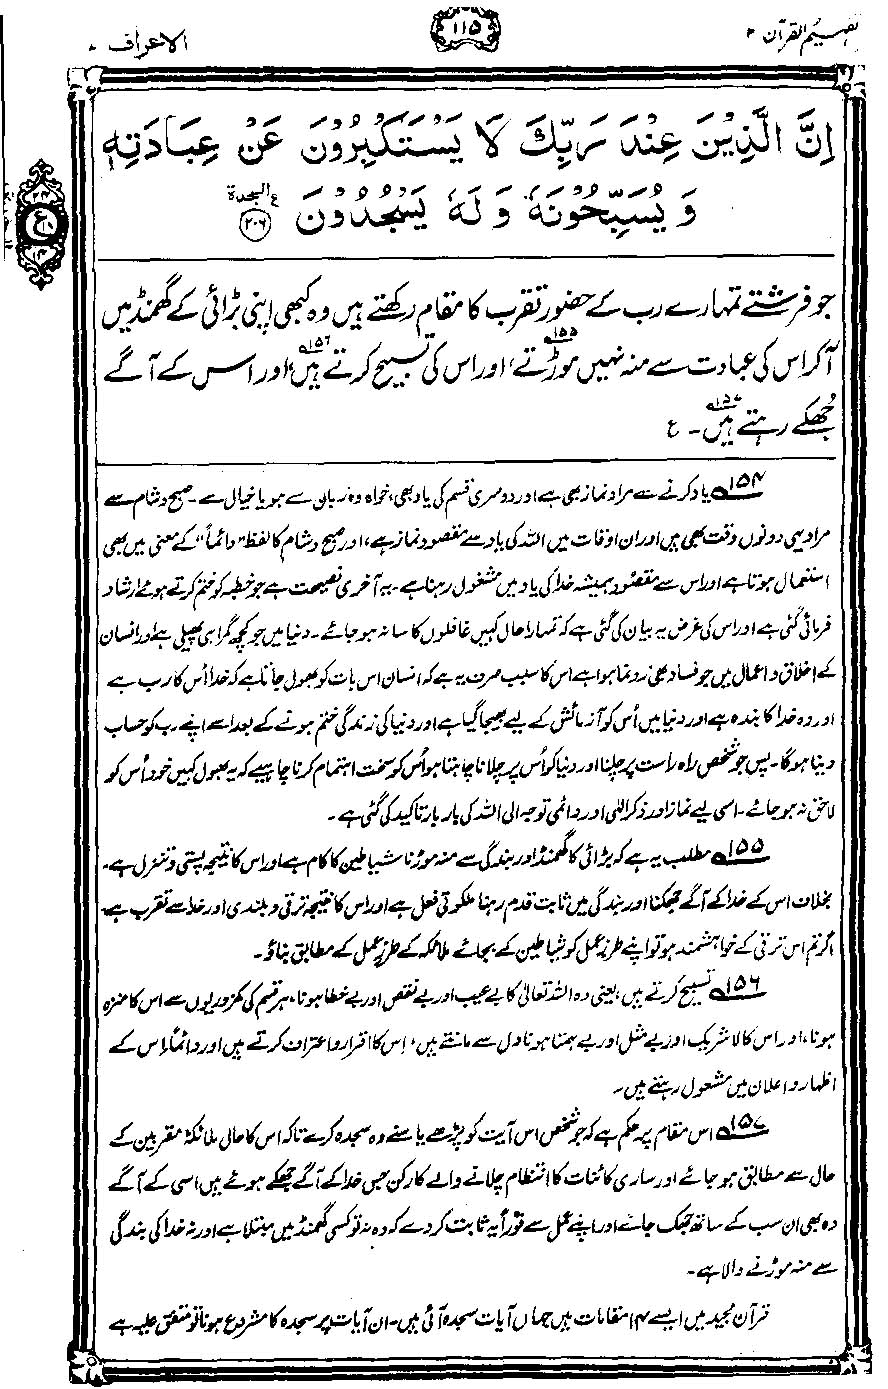 تفہیم القرآن ۲
۱۱۵
الاعراف ۷
اِنَّ الَّذِيْنَ عِنْدَ رَبِّكَ لَا يَسْتَكْبِرُوْنَ عَنْ عِبَادَتِهٖ
وَيُسَبِّحُوْنَهٗ وَلَهٗ يَسْجُدُوْنَ ۲۰۶ السجدة
ع
۲۴
۱۴
جو فرشتے تمہارے رب کے حضور تقرب کا مقام رکھتے ہیں وہ کبھی اپنی بڑائی کے گھمنڈ میں
آکر اس کی عبادت سے منہ نہیں موڑتے ۱۵۵، اور اس کی تسبیح کرتے ہیں ۱۵۶، اور اس کے آگے
جھکے رہتے ہیں ۱۵۷۔ ع
۱۵۴ یاد کرنے سے مراد نماز بھی ہے اور دوسری قسم کی یاد بھی، خواہ وہ زبان سے ہو یا خیال سے۔ صبح و شام سے
مراد یہی دونوں وقت بھی ہیں اور ان اوقات میں اللہ کی یاد سے مقصود نماز ہے، اور صبح و شام کا لفظ ”دائماً“ کے معنی میں بھی
استعمال ہوتا ہے اور اس سے مقصود ہمیشہ خدا کی یاد میں مشغول رہنا ہے۔ یہ آخری نصیحت ہے جو خطبہ کو ختم کرتے ہوئے ارشاد
فرمائی گئی ہے اور اس کی غرض یہ بیان کی گئی ہے کہ تمہارا حال کہیں غافلوں کا سا نہ ہو جائے۔ دنیا میں جو کچھ گمراہی پھیلی ہے اور انسان
کے اخلاق و اعمال میں جو فساد بھی رونما ہوا ہے اس کا سبب صرف یہ ہے کہ انسان اس بات کو بھول جاتا ہے کہ خدا اُس کا رب ہے
اور وہ خدا کا بندہ ہے اور دنیا میں اُس کو آزمائش کے لیے بھیجا گیا ہے اور دنیا کی زندگی ختم ہونے کے بعد اسے اپنے رب کو حساب
دینا ہوگا۔ پس جو شخص راہ راست پر چلنا اور دنیا کو اُس پر چلانا چاہتا ہو اُس کو سخت اہتمام کرنا چاہیے کہ یہ بھول کہیں خود اُس کو
لاحق نہ ہو جائے۔ اسی لیے نماز اور ذکر الٰہی اور دائمی توجہ الی اللہ کی بار بار تاکید کی گئی ہے۔
۱۵۵ مطلب یہ ہے کہ بڑائی کا گھمنڈ اور بندگی سے منہ موڑنا شیاطین کا کام ہے اور اس کا نتیجہ پستی و تنزل ہے۔
بخلاف اس کے خدا کے آگے جھکنا اور بندگی میں ثابت قدم رہنا ملکوتی فعل ہے اور اس کا نتیجہ ترقی و بلندی اور خدا سے تقرب ہے۔
اگر تم اس ترقی کے خواہشمند ہو تو اپنے طرز عمل کو شیاطین کے بجائے ملائکہ کے طرز عمل کے مطابق بناؤ۔
۱۵۶ تسبیح کرتے ہیں، یعنی وہ اللہ تعالیٰ کا بے عیب اور بے نقص اور بے خطا ہونا، ہر قسم کی کمزوریوں سے اس کا منزہ
ہونا، اور اس کا لاشریک اور بے مثل اور بے ہمتا ہونا دل سے مانتے ہیں، اِس کا اقرار و اعتراف کرتے ہیں اور دائماً اِس کے
اظہار و اعلان میں مشغول رہتے ہیں۔
۱۵۷ اس مقام پر حکم ہے کہ جو شخص اس آیت کو پڑھے یا سنے وہ سجدہ کرے تاکہ اس کا حال ملائکۂ مقربین کے
حال سے مطابق ہو جائے اور ساری کائنات کا انتظام چلانے والے کارکن جس خدا کے آگے جھکے ہوئے ہیں اسی کے آگے
وہ بھی ان سب کے ساتھ جھک جائے اور اپنے عمل سے فوراً یہ ثابت کر دے کہ وہ نہ تو کسی گھمنڈ میں مبتلا ہے اور نہ خدا کی بندگی
سے منہ موڑنے والا ہے۔
قرآن مجید میں ایسے ۱۴ مقامات ہیں جہاں آیات سجدہ آئی ہیں۔ ان آیات پر سجدہ کا مشروع ہونا تو متفق علیہ ہے